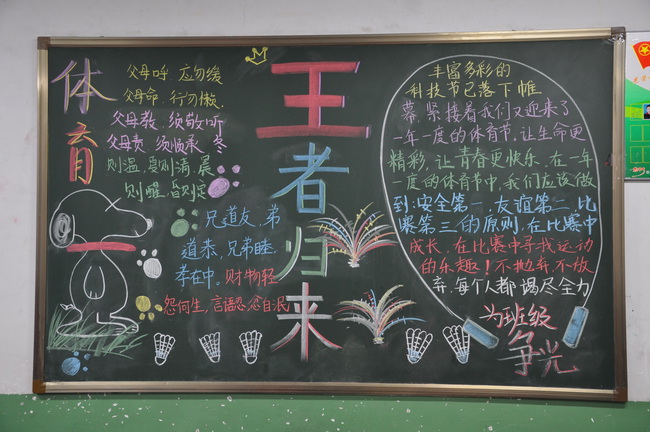 体育
父母呼 应勿缓
父母命 行勿懒
父母教 须敬听
父母责 须顺承 冬
则温 夏则清 晨
则醒 昏则定
兄道友 弟
道恭 兄弟睦
孝在中 财物轻
怨何生 言語忍 忿自泯
王者归来
丰富多彩的
科技节已落下帷
幕,紧接着我们又迎来了
一年一度的体育节,让生命更
精彩,让青春更快乐.在一年
一度的体育节中,我们应该做
到:安全第一,友谊第二,比
赛第三的原则.在比赛中
成长,在比赛中寻找运动
的乐趣!不抛弃,不放
弃,每个人都竭尽全力
为班级
争光